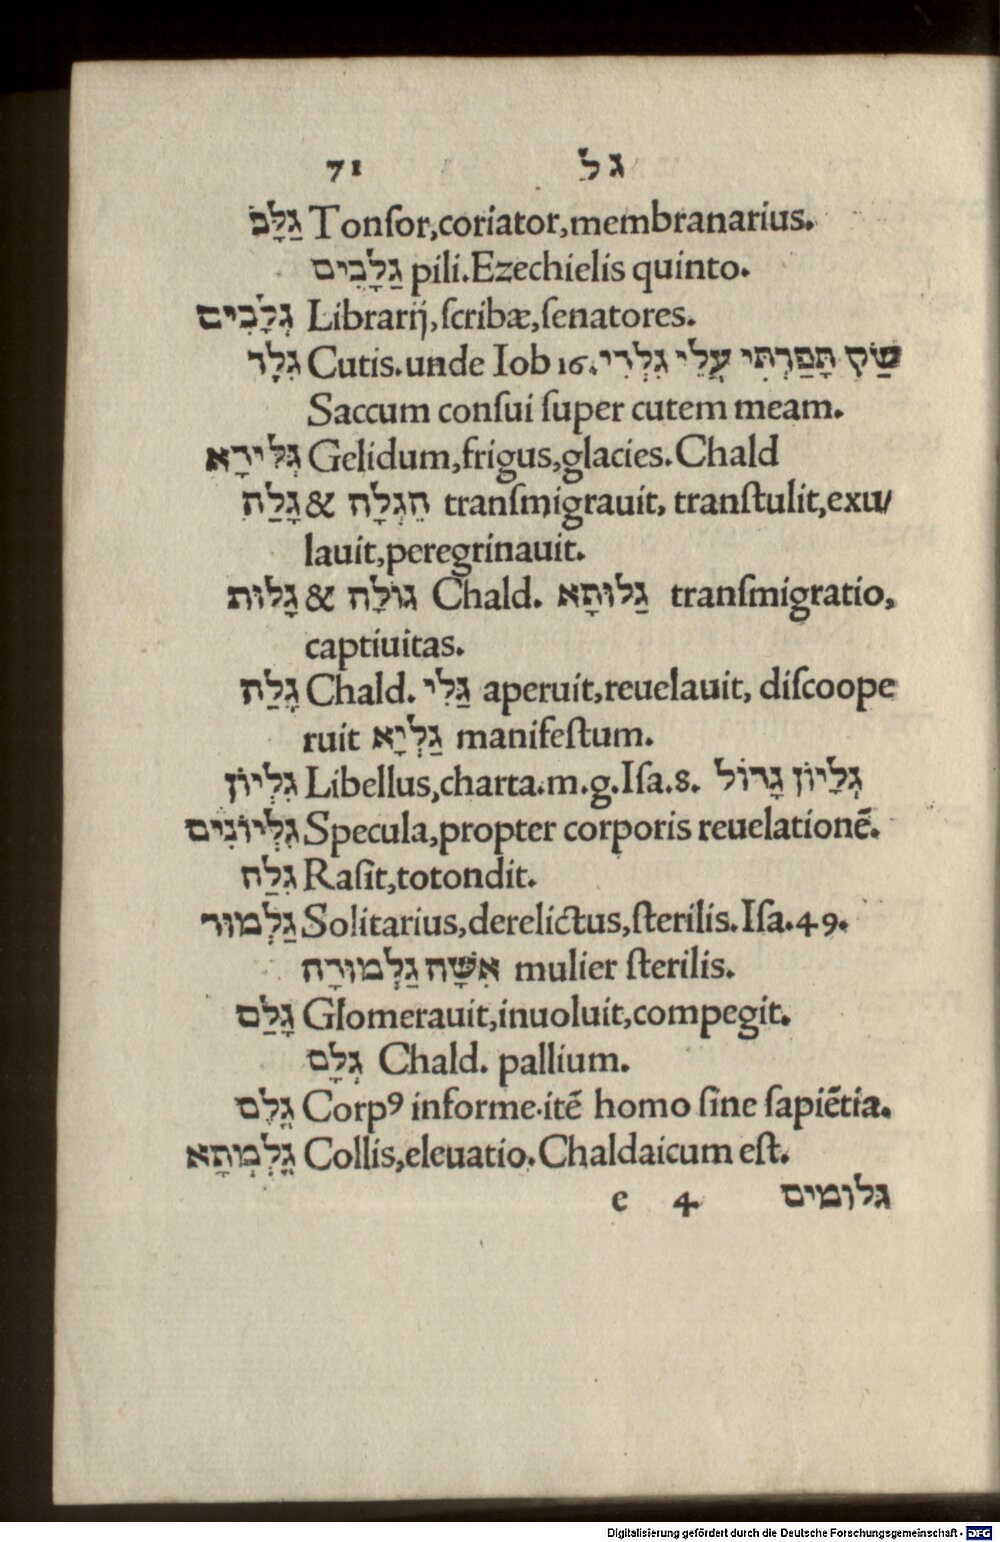 71 גל
גַּלָּב Tonſor,coriator,membranarius.
גַּלָּבִים pili.Ezechielis quinto.
גְּלָבִים Librarij,ſcribæ,ſenatores.
גִּלֶד Cutis.unde Iob 16. שַׂק תָּפַרְתִּי עֲלֵי גִלְדִי
Saccum conſui ſuper cutem meam.
גְּלִידָא Gelidum,frigus,glacies.Chald
גָּלַה & הֵגְלָה transmigrauit, tranſtulit,exu/
lauit,peregrinauit.
גָּלוּת & גּוֹלָה Chald. גַּלוּתָא tranſmigratio,
captiuitas.
גָּלַה Chald. גַּלִי aperuit,reuelauit, diſcoope
ruit גַּלְיָא manifeſtum.
גִּלְיוֹן Libellus,charta.m.g.Iſa.8. גִּלָּיוֹן גָּדוֹל
גִּלְיוֹנִים Specula,propter corporis reuelationē.
גִּלַּח Raſit,totondit.
גַּלְמוּד Solitarius,derelictus,ſterilis.Iſa.49.
אִשָּׁה גַּלְמוּדָה mulier ſterilis.
גָּלַם Glomerauit,inuoluit,compegit.
גְּלָם Chald. pallium.
גֶּלֶם Corpꝰ informe.itē homo ſine ſapiētia.
גָּלְמְתָא Collis,eleuatio.Chaldaicum eſt.
e 4 גלומים
Digitalisierung gefördert durch die Deutsche Forschungsgemeinschaft - DFG